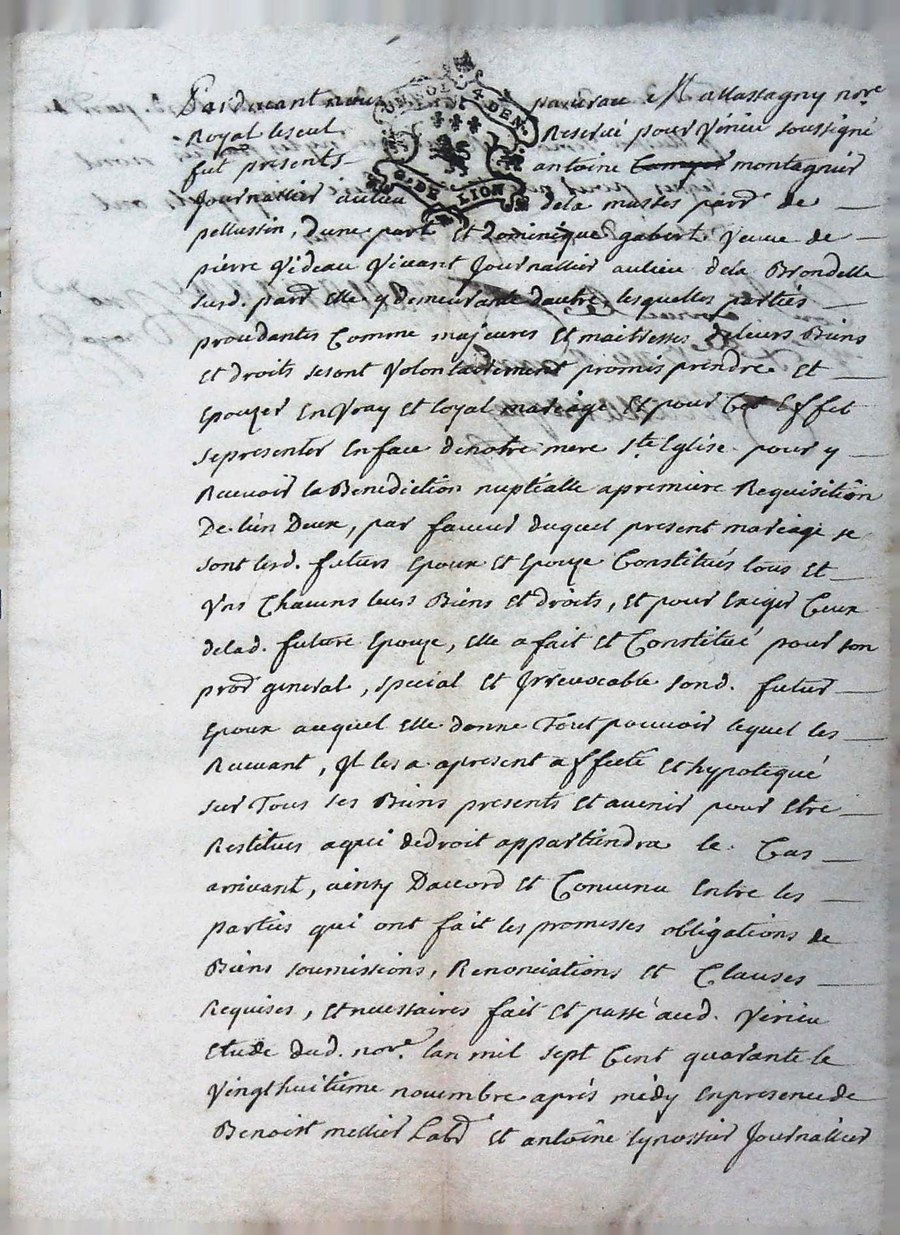 UN SOL. 4. DEN.
G. DE LION
Pardevant nous pancrace Mallassagny nore
Royal leseul Reservé pour Virieu soussigné
fut presents antoine montagnier
Journallier aulieu dela mustes parr de
pellussin, d'une part Et Dominique gabert Veuve de
pierre Videau Vivant Journallier aulieu dela Brondelle
susd. parr elle y demeurante dautre, lesquelles parties
proudantes Comme majeures Et maitresses deleurs Biens
Et droits sesont Volontairement promis prendre Et
Epouzer En Vray Et loyal mariage Et pour Cet Effet
sepresenter Enface denotre mere Ste Eglise pour y
Recevoir la Benediction nuptialle apremiere Requisition
De l'un Deux, par faveur duquel present mariage se
sont lesd. futurs Epoux Et Epouze Constitués tous Et
Uns Chacuns leurs Biens Et droits, Et pour Exiger Ceux
delad. future Epouze, Elle a fait Et Constitué pour son
procr general, special Et Irrevocable sond. futur
Epoux auquel Elle donne Tout pouvoir lequel les
Recevant, Il les a apresent affecté Et hypotequé
sur Tous ses Biens presents Et avenir pour Etre
Restitues aqui dedroit appartiendra le Cas
arrivant, ainsy Daccord Et Convenu Entre les
parties qui ont fait les promesses obligations de
Biens soumissions, Renonciations Et Clauses
Requises, Et necessaires fait Et passé aud. Virieu
Etude dud. nore. lan mil sept Cent quarante le
Vingthuitième novembre après midy Enpresence de
Benoist mellier Labr Et antoine Journallier